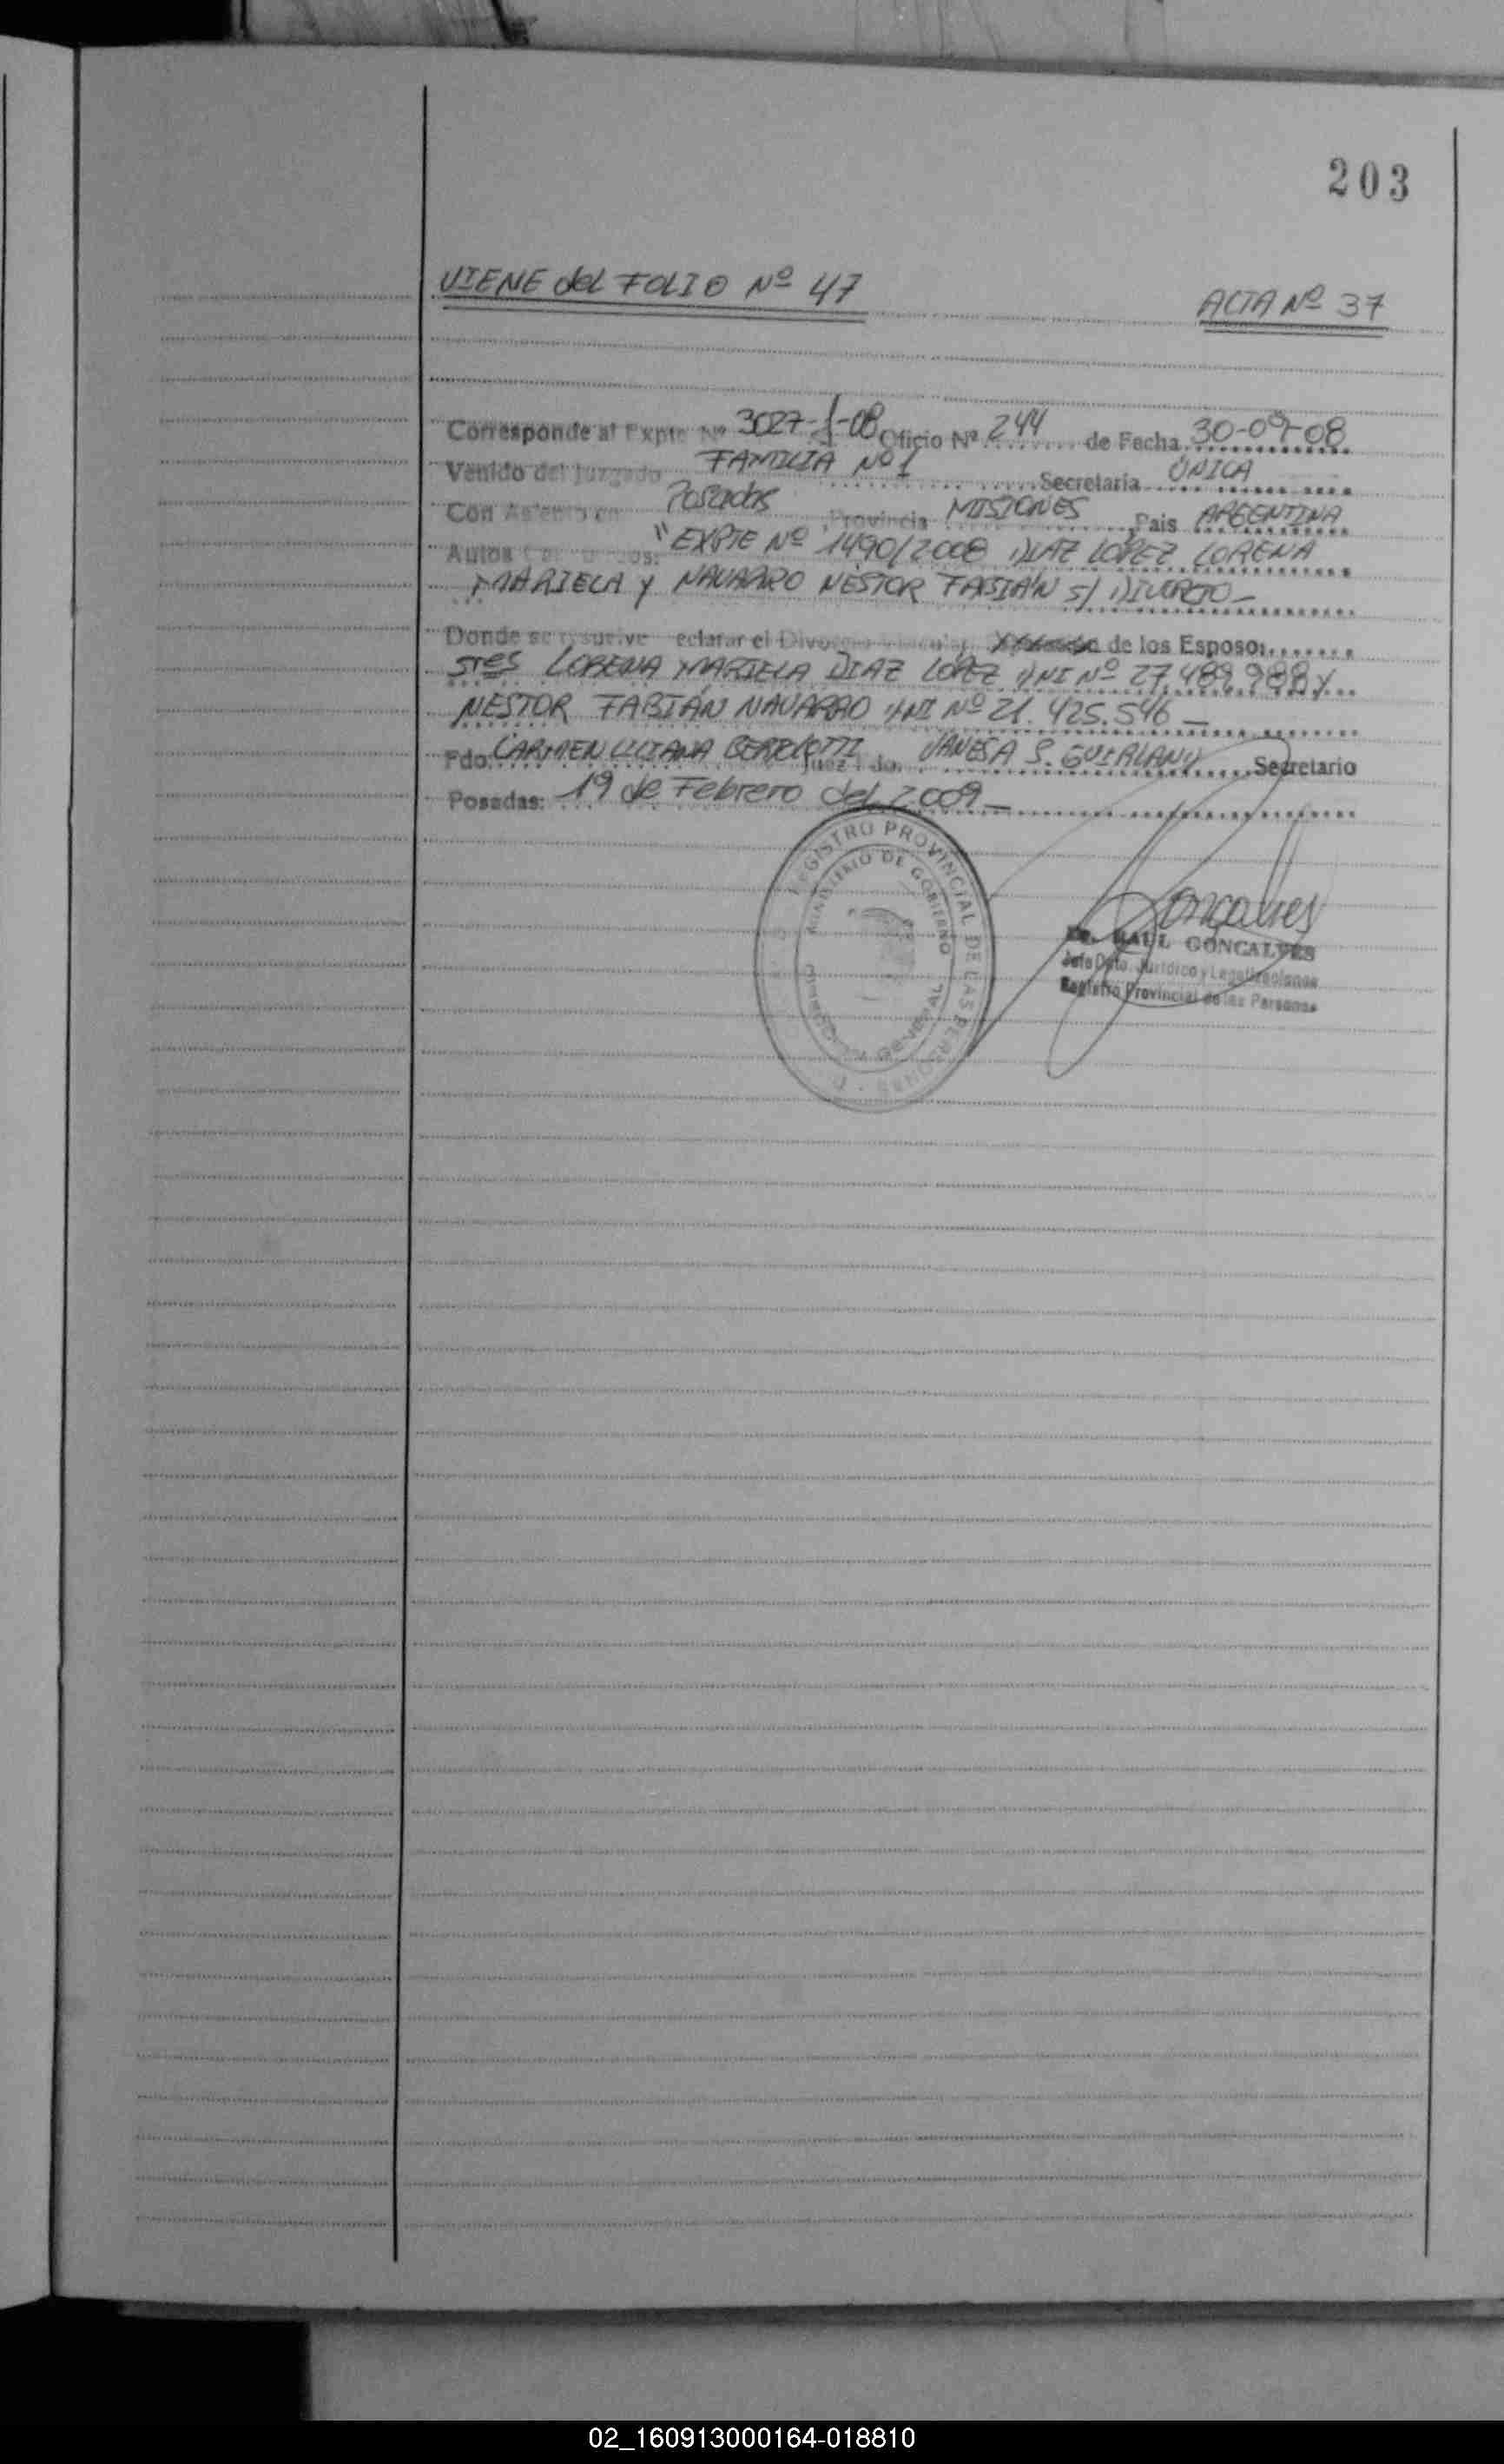 203
VIENE del FOLIO Nº 47 ACTA Nº 37
Corresponde al Expte Nº 3027-J-08 Oficio Nº 244 de Fecha 30-09-08
Venido del Juzgado FAMILIA Nº 1 Secretaria ÚNICA
Con Asiento en Posadas Provincia MISIONES Pais ARGENTINA
Autos "EXPTE Nº 1490/2008 DIAZ LOPEZ LORENA
MARIELA Y NAVARRO NÉSTOR FABIÁN S/ DIVORCIO -
Donde se resuelve eclarar el Divorcio de los Esposo:
Sres LORENA MARIELA DIAZ LOPEZ DNI Nº 27.489.988 Y
NESTOR FABIÁN NAVARRO DNI Nº 21.425.546 -
Fdo. CARMEN LILIANA BERTOLOTTI Juez VANESA S. Secretario
Posadas: 19 de Febrero del 2009 -
REGISTRO PROVINCIAL DE LAS PERSONAS
MINISTERIO DE GOBIERNO
GENERAL
Goncalves
Dr. RAUL GONCALVES
Jefe Dpto. Jurídico y Legalizaciones
Registro Provincial de las Personas
02_160913000164-018810